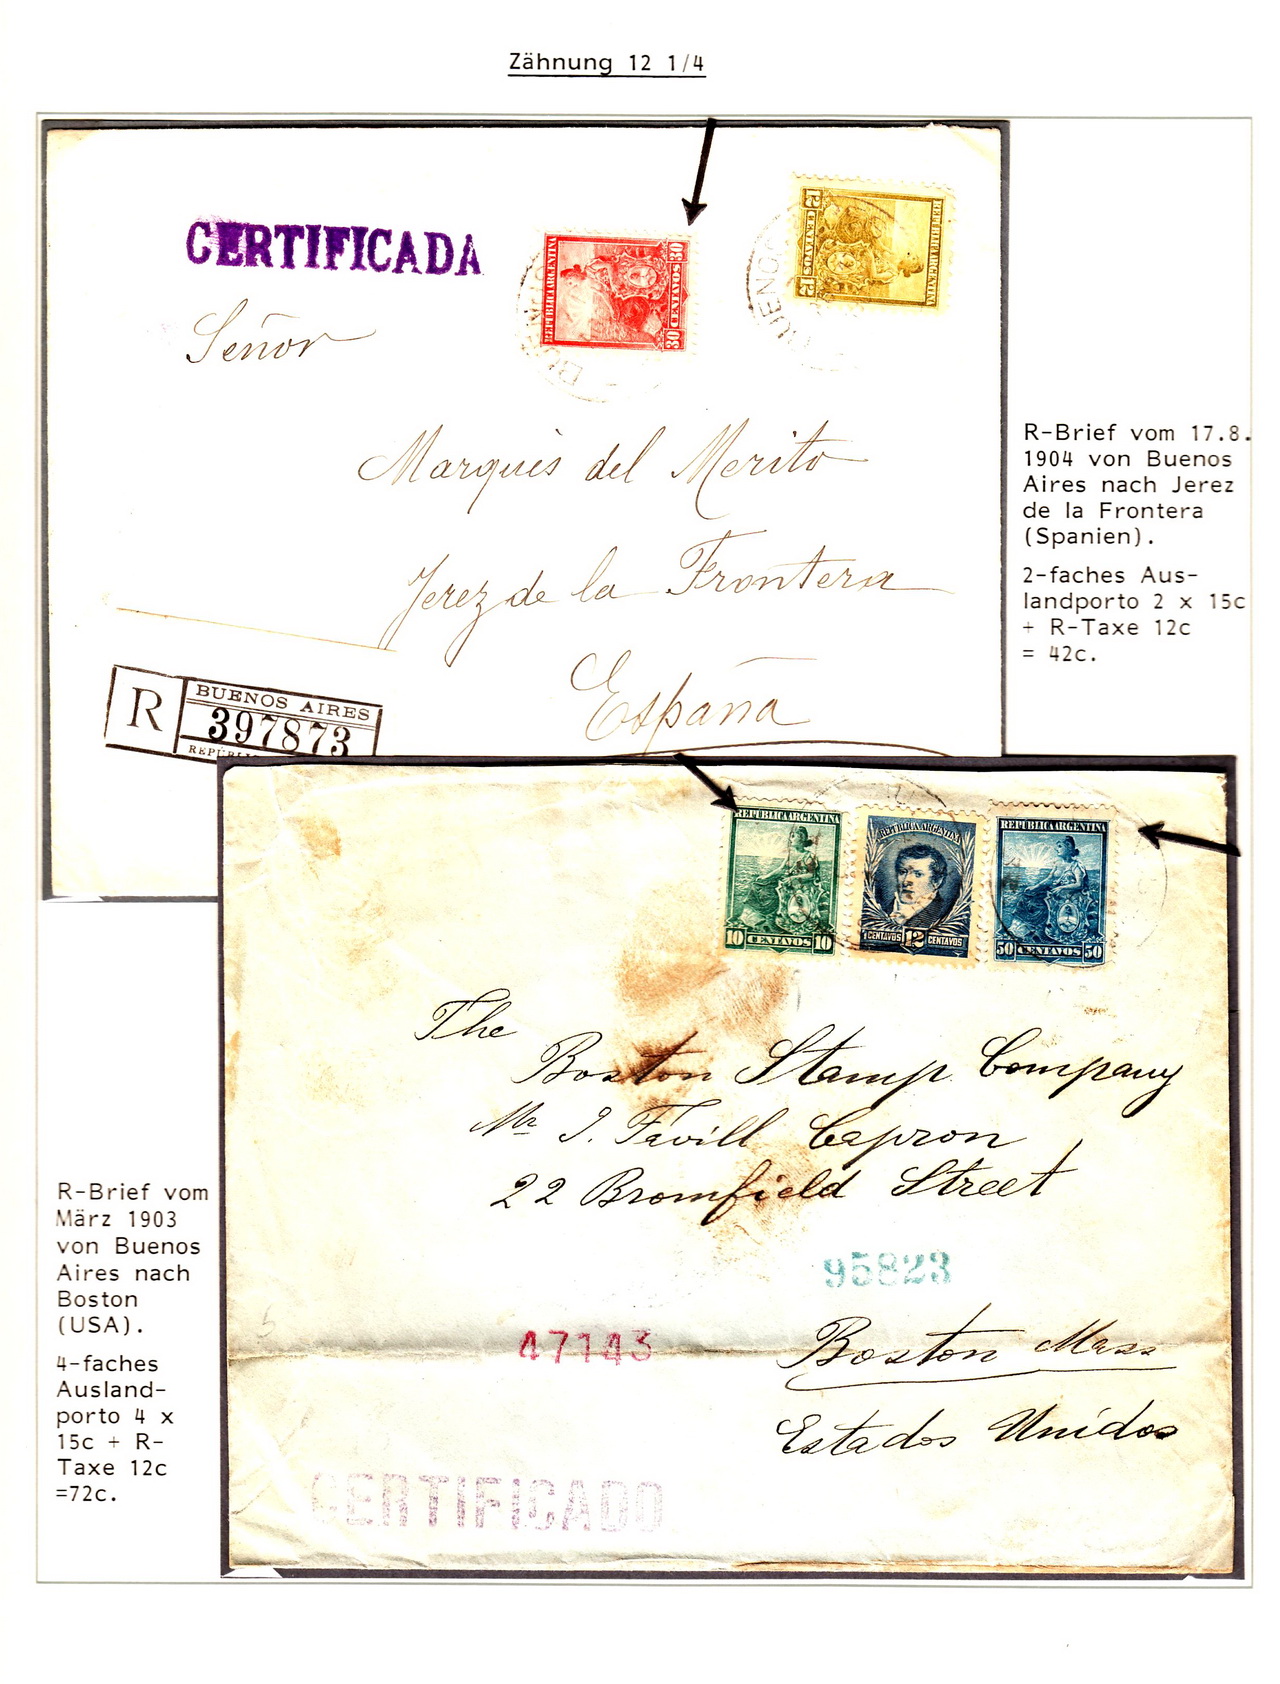 Zähnung 12 1/4
CERTIFICADA
Señor
Marqués del Merito
Jerez de la Frontera
España
REPUBLICA ARGENTINA
30 CENTAVOS 30
REPUBLICA ARGENTINA
12 CENTAVOS 12
BUENO
R
BUENOS AIRES
397873
R-Brief vom 17.8.
1904 von Buenos
Aires nach Jerez
de la Frontera
(Spanien).
2-faches Aus-
landporto 2 x 15c
+ R-Taxe 12c
= 42c.
REPUBLICA ARGENTINA
10 CENTAVOS 10
REPUBLICA ARGENTINA
CENTAVOS 12 CENTAVOS
REPUBLICA ARGENTINA
50 CENTAVOS 50
The
Boston Stamp Company
Mr J. Favill Capron
22 Bromfield Street
95823
47143
Boston Mass
Estados Unidos
CERTIFICADO
R-Brief vom
März 1903
von Buenos
Aires nach
Boston
(USA).
4-faches
Ausland-
porto 4 x
15c + R-
Taxe 12c
=72c.